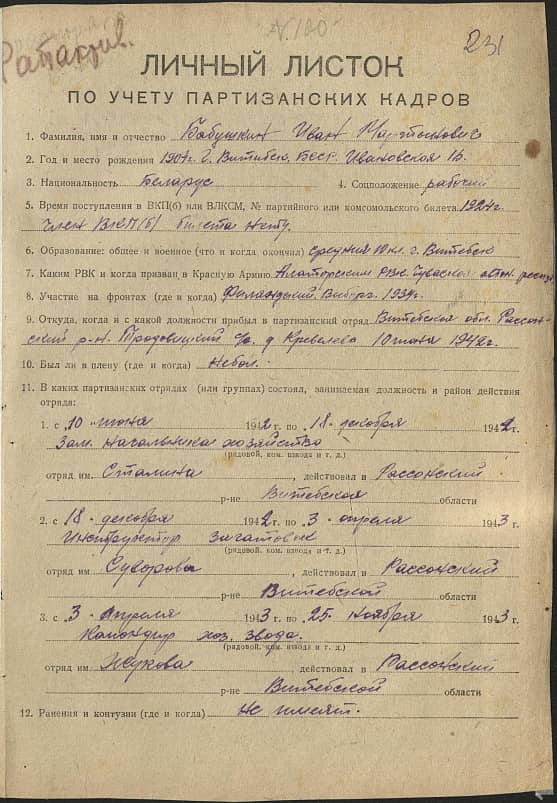 № 100
231
ЛИЧНЫЙ ЛИСТОК
ПО УЧЕТУ ПАРТИЗАНСКИХ КАДРОВ
1. Фамилия, имя и отчество Бабушкин Иван Мартинович
2. Год и место рождения 1907 г. г. Витебск. Ивановская 16.
3. Национальность Беларус 4. Соцположение рабочий
5. Время поступления в ВКП(б) или ВЛКСМ, № партийного или комсомольского билета 1927 г.
член ВКП(б) билета нету.
6. Образование: общее и военное (что и когда окончил) средния 10 кл. г. Витебск
7. Каким РВК и когда призван в Красную Армию Алаторским РВК Чуваской автон.
8. Участие на фронтах (где и когда) Выборг. 1939 г.
9. Откуда, когда и с какой должности прибыл в партизанский отряд Витебская обл. Рассон-
ский р-н. с/с. д 10 июня 1942 г.
10. Был ли в плену (где и когда) Небол.
11. В каких партизанских отрядах (или группах) состоял, занимаемая должность и район действия
отряда:
1. с 10 июня 1942 г. по 18. декабря 1942 г.
Зам. начальника хозяйства
(рядовой, ком. взвода и т. д.)
отряд им. Сталина , действовал в Рассонский
р-не Витебская области
2. с 18. декабря 1942 г. по 3 - апреля 1943 г.
Инструктор заготовок
(рядовой, ком. взвода и т. д.)
отряд им. Суворова , действовал в Рассонский
р-не Витебской области
3. с 3 - Апреля 1943 г. по 25. ноября 1943 г.
Камондир хоз. звода.
(рядовой, ком. взвода и т. д.)
отряд им. Жукова , действовал в Рассонский
р-не Витебской области
12. Ранения и контузии (где и когда) Не имеят.